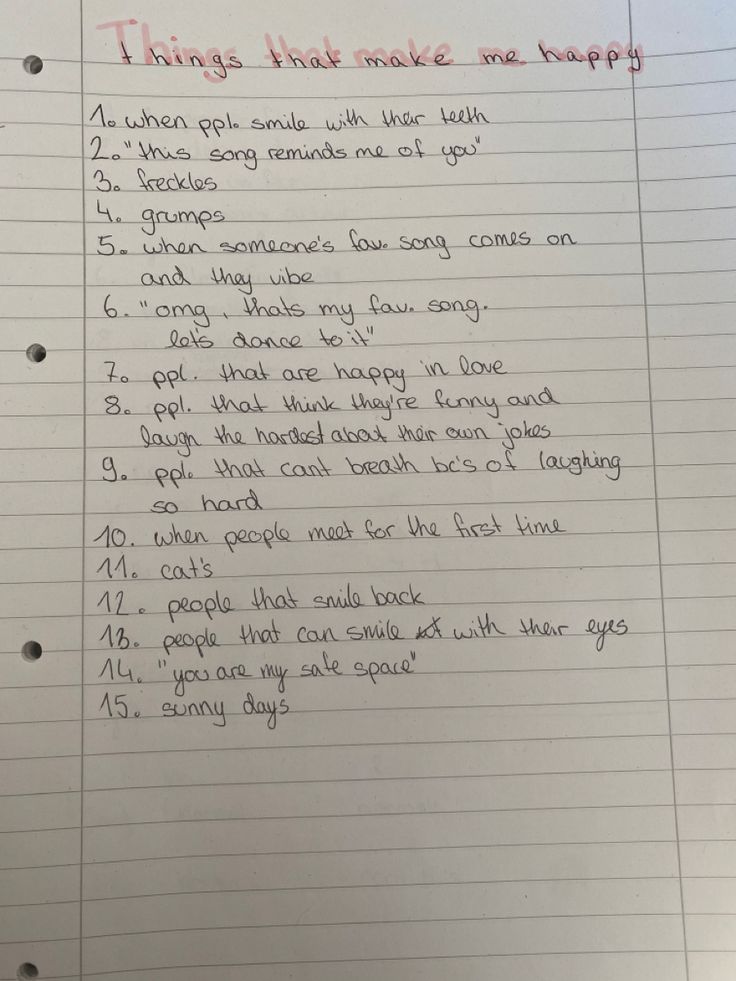 things that make me happy
1. when ppl. smile with their teeth
2. "this song reminds me of you"
3. freckles
4. grumps
5. when someone's fav. song comes on
and they vibe
6. "omg, thats my fav. song.
let's dance to it"
7. ppl. that are happy in love
8. ppl. that think they're funny and
laugh the hardest about their own jokes
9. ppl. that cant breath bc's of laughing
so hard
10. when people meet for the first time
11. cat's
12. people that smile back
13. people that can smile with their eyes
14. "you are my safe space"
15. sunny days